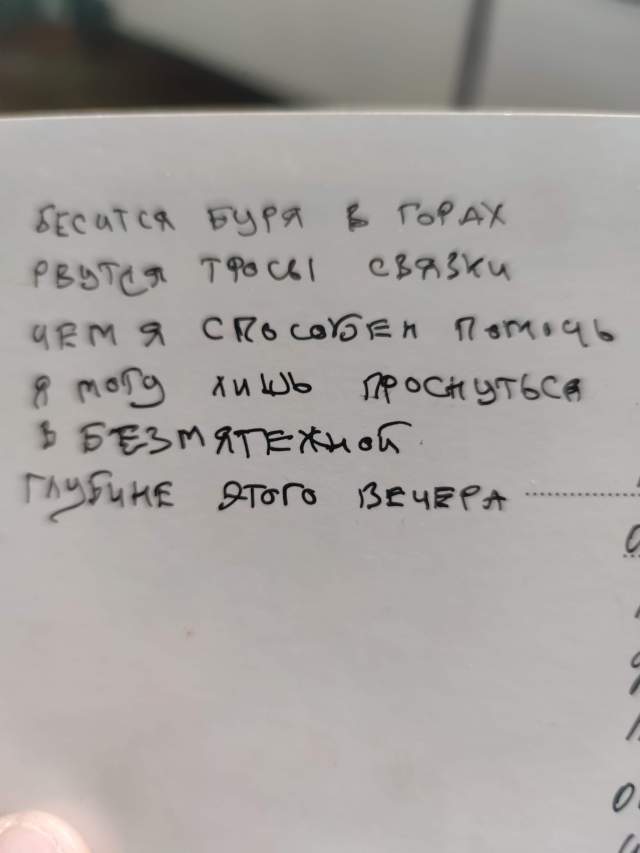 БЕСИТСЯ БУРЯ В ГОРАХ
РВУТСЯ ТРОСЫ СВЯЗКИ
ЧЕМ Я СПОСОБЕН ПОМОЧЬ
Я МОГУ ЛИШЬ ПРОСНУТЬСЯ
В БЕЗМЯТЕЖНОЙ
ГЛУБИНЕ ЭТОГО ВЕЧЕРА